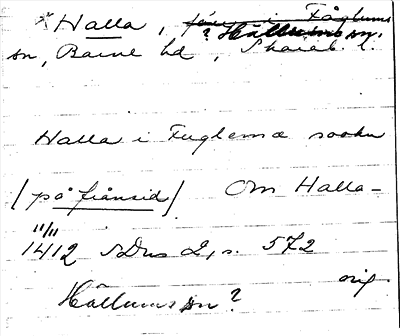 *Halla, i Fåglums
? Hällums sn.
sn, Barne hd, Skarab. l.
Halla i Fuglema sookn
[på frånsid] Om Halla-
11/11
1412 SDns 2, s. 572
orig
Hällums sn?